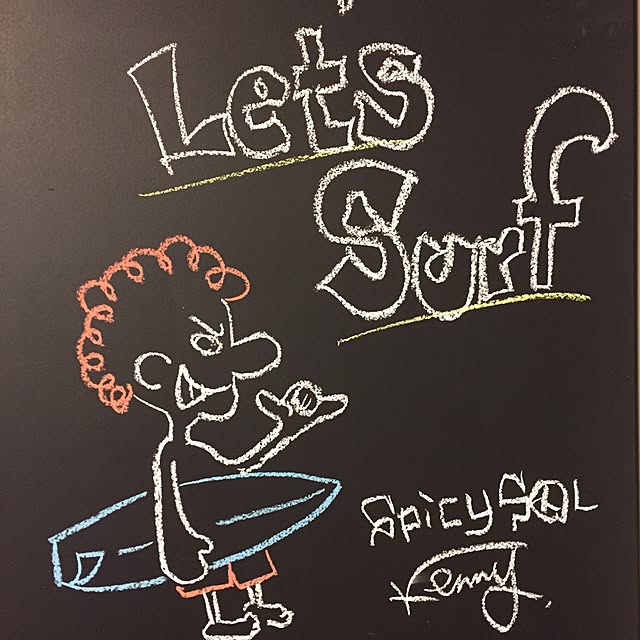 Lets
Surf
SpicySOL
Kenny